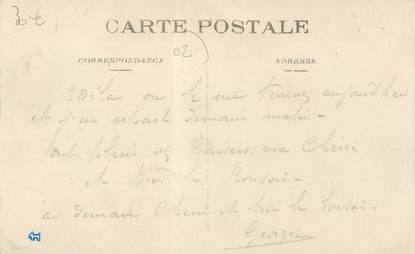 3€
CARTE POSTALE
02
CORRESPONDANCE ADRESSE
Voila ou je me trouve aujourd'hui
et j'en repart demain matin -
tout plein de Baisers, ma Chérie
et Bien le Bonsoir -
à demain Cherie et bien le bonsoir -
Georges